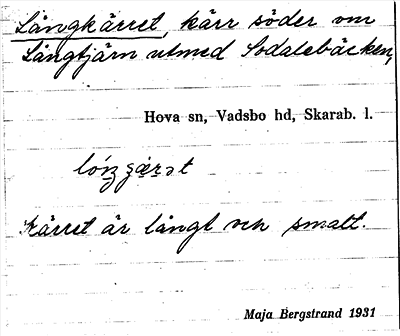 Långkärret, kärr söder om
Långtjärn utmed Sodalebäcken,
Hova sn, Vadsbo hd, Skarab. l.
Kärret är långt och smalt.
Maja Bergstrand 1931